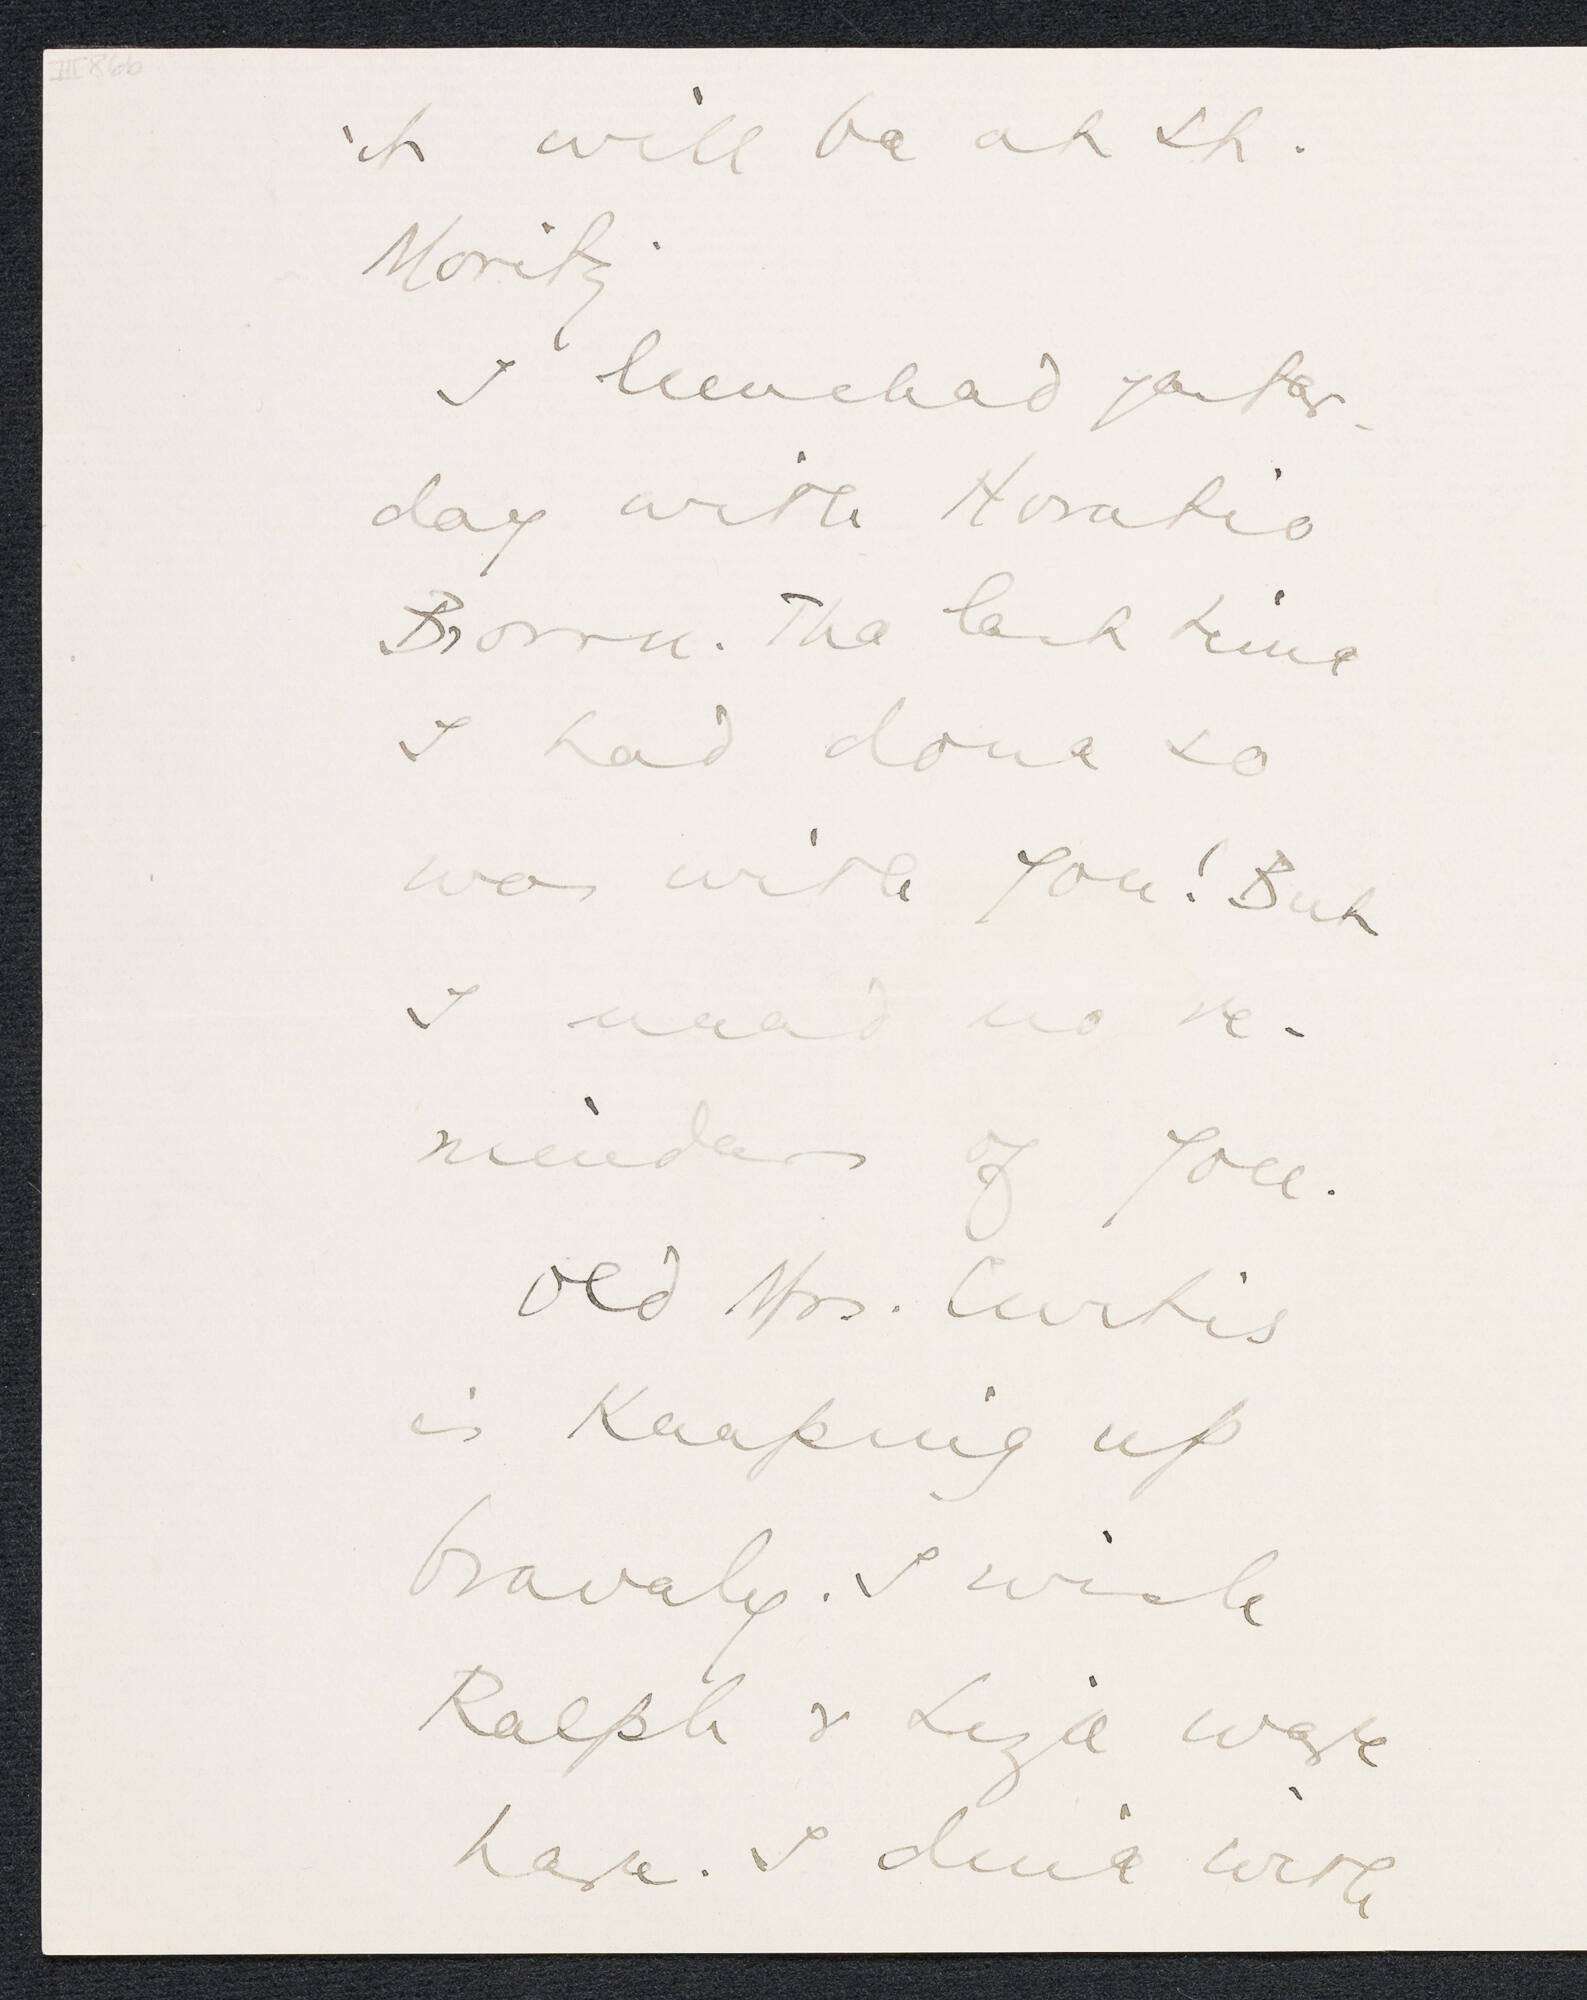 III 866
it will be at St.
Moritz.
I lunched yester-
day with Horatio
Brown. The last time
I had done so
was with you! But
I need no re-
minders of you.
Old Mrs. Curtis
is keeping up
bravely. I wish
Ralph & Lizie were
here. I dine with